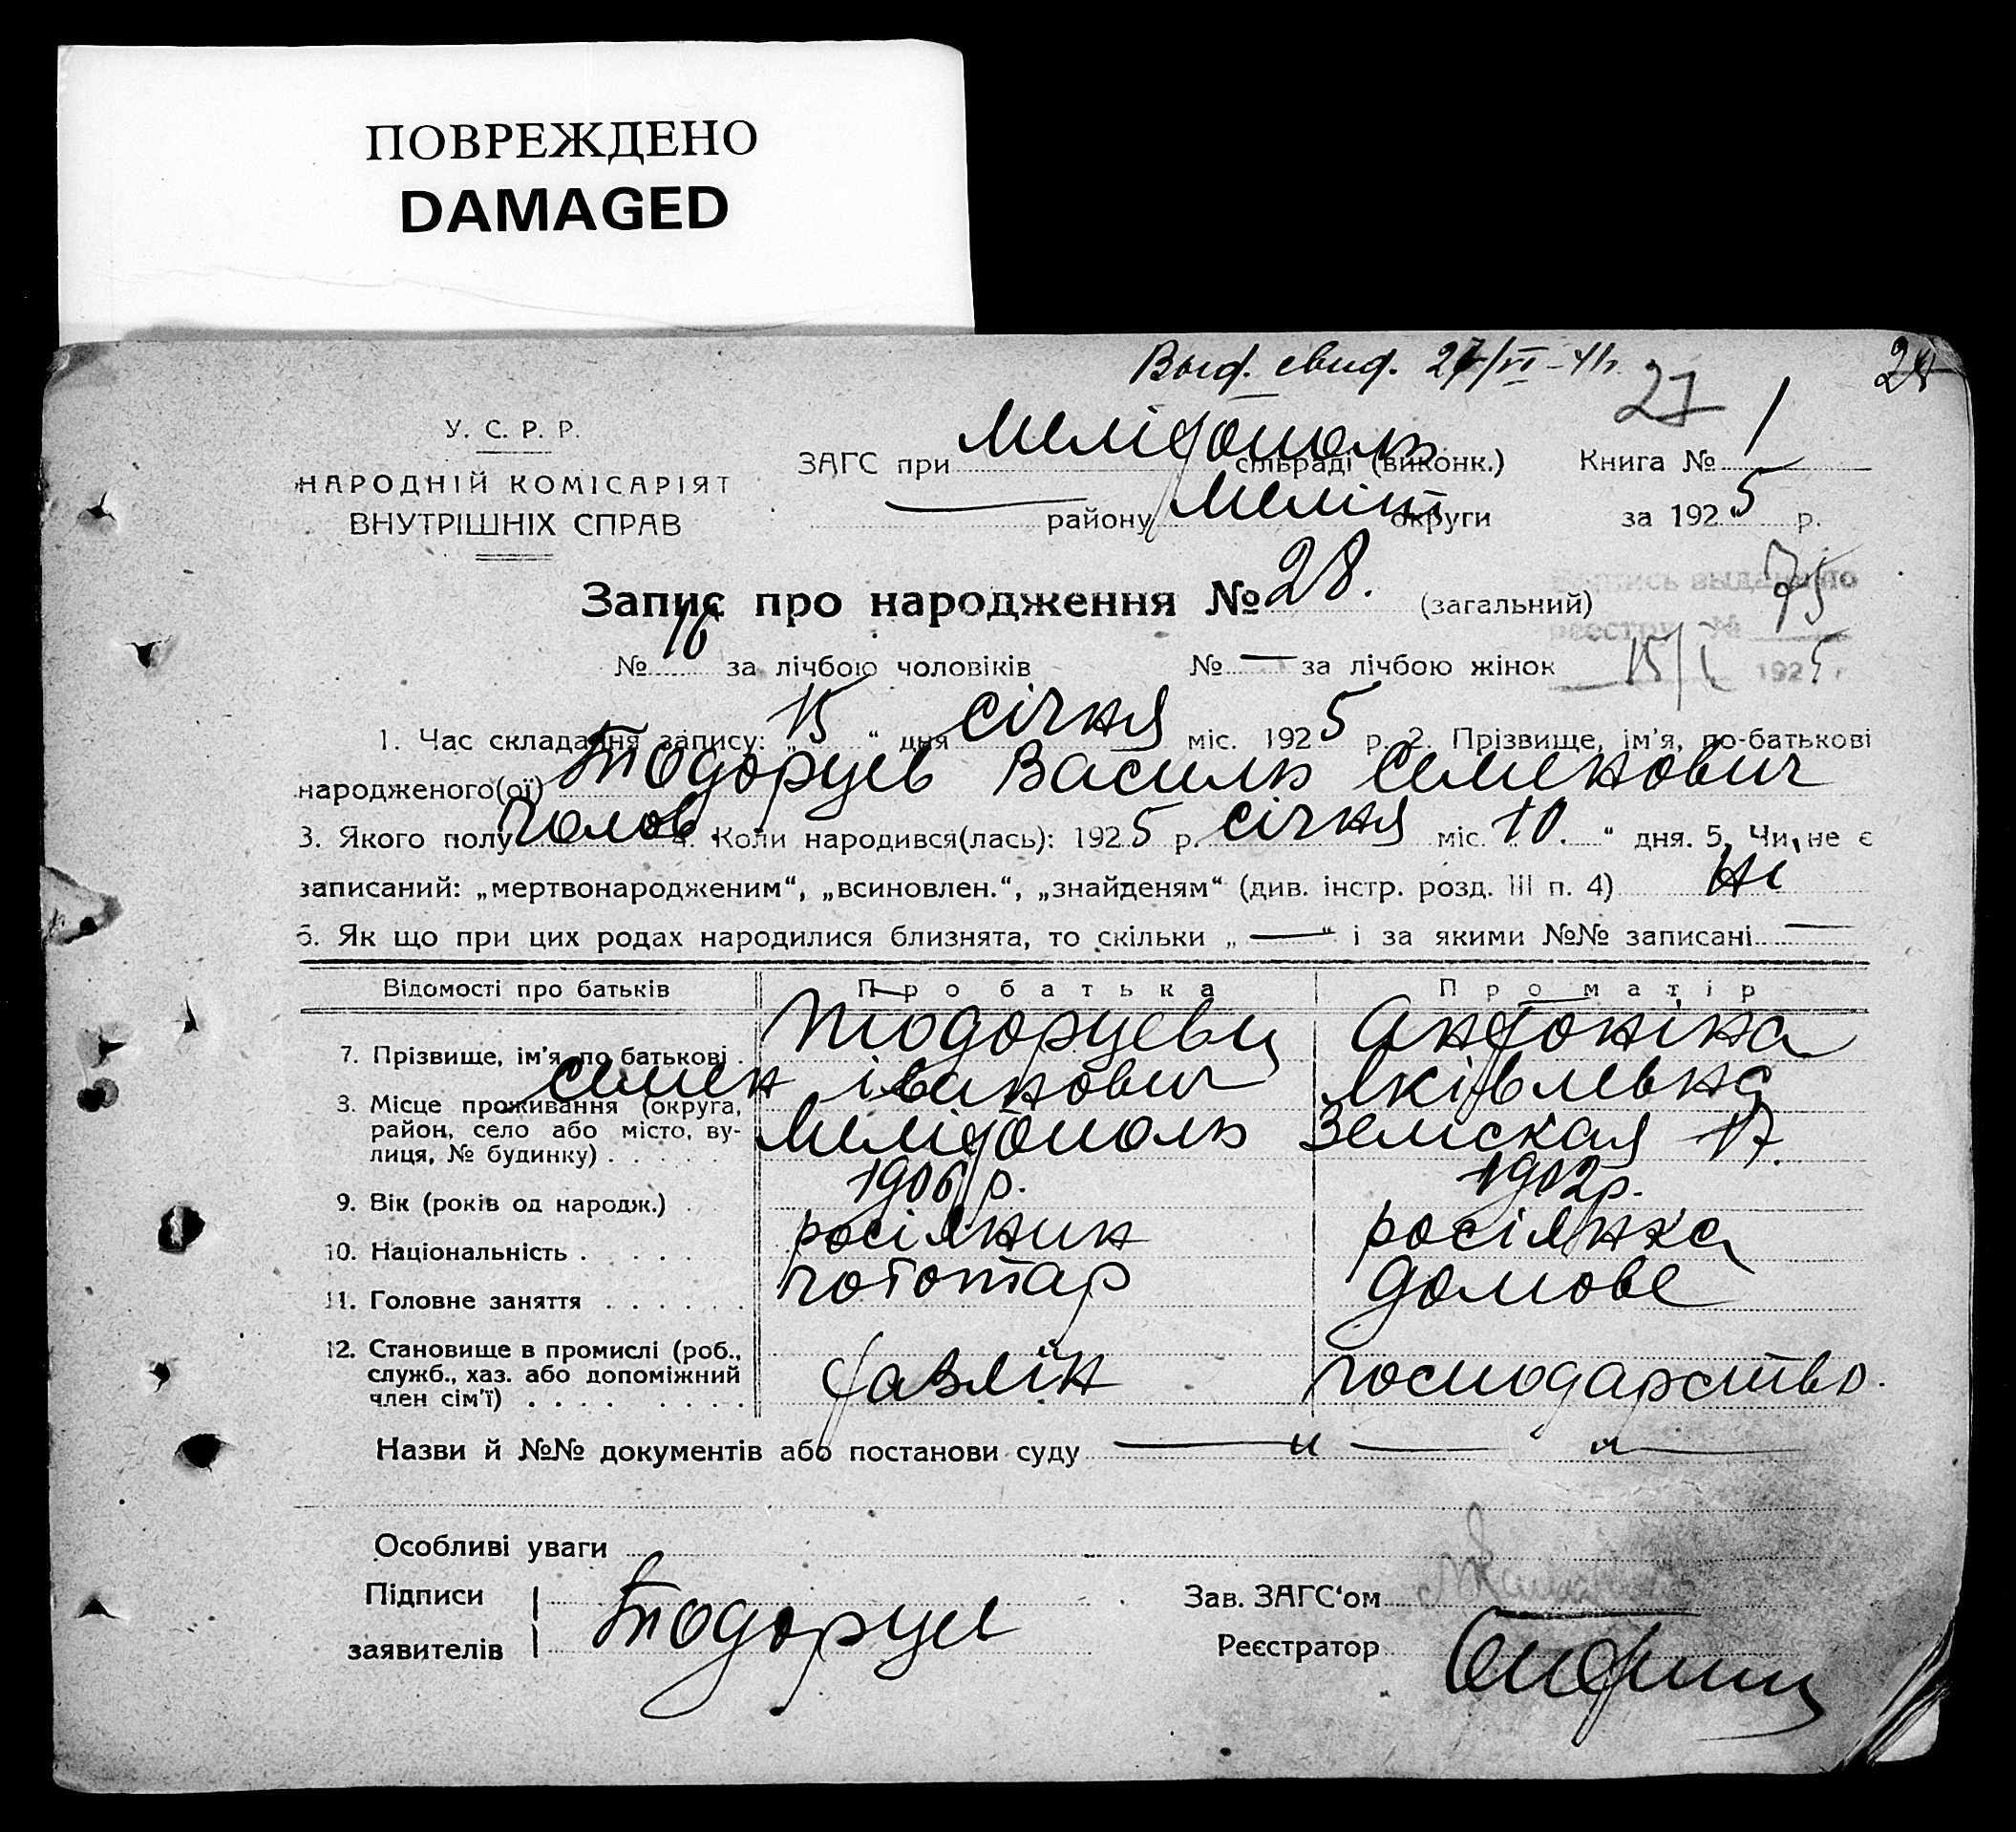 ПОВРЕЖДЕНО
DAMAGED
Выд. свид. 27/VI-41г.
27
У. С. Р. Р.
НАРОДНІЙ КОМІСАРІЯТ
ВНУТРІШНІХ СПРАВ
ЗАГС при Мелітополь сільраді (виконк.) Книга № 1
— району Меліт округи за 1925 р.
Запис про народження № 28. (загальний)
75
№ 16 за лічбою чоловіків № — за лічбою жінок
15/I 1925 г.
1. Час складання запису: „15“ дня січня міс. 1925 р. 2. Прізвище, ім'я, по-батькові
народженого(ої) Тодорцев Василь Семенович
3. Якого полу чолов. 4. Коли народився(лась): 1925 р. січня міс. 10. “ дня. 5. Чи не є
записаний: „мертвонародженим“, „всиновлен.“, „знайденям“ (див. інстр. розд. III п. 4) Ні
6. Як що при цих родах народилися близнята, то скільки „—“ і за якими №№ записані —
Відомості про батьків Про батька Про матір
7. Прізвище, ім'я по батькові . Тодорцеви Антоніна
Семен Іванович Яківлевна
8. Місце проживання (округа, район, село або місто, вулиця, № будинку) . . . . . Мелітополь Земская 17.
9. Вік (років од народж.) . . 1906 р. 1902 р.
10. Національність . . . . росіянин росіянка
11. Головне заняття . . . . . . домове
12. Становище в промислі (роб.,
служб., хаз. або допоміжний
член сім'ї) . . . . . . . . господарство.
Назви й №№ документів або постанови суду — „ — „ —
Особливі уваги
Підписи
заявителів Тодорцев
Зав. ЗАГС'ом
Реєстратор